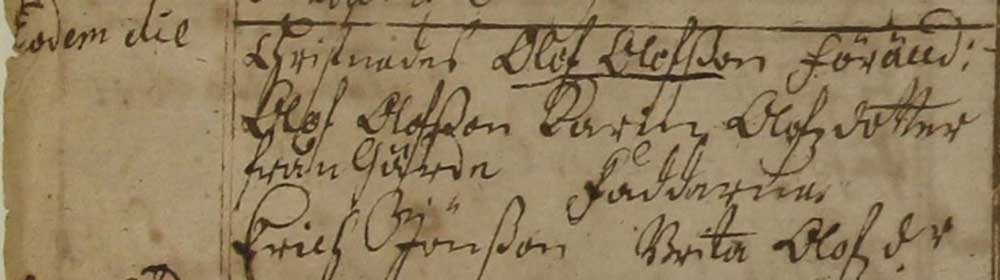 Eodem die
Christnades Olof Olofsson föräld:
Olof Olofsson Karin Olofzdotter
från Gärde Faddarne
Erich Jönsson Brita Olofzdr